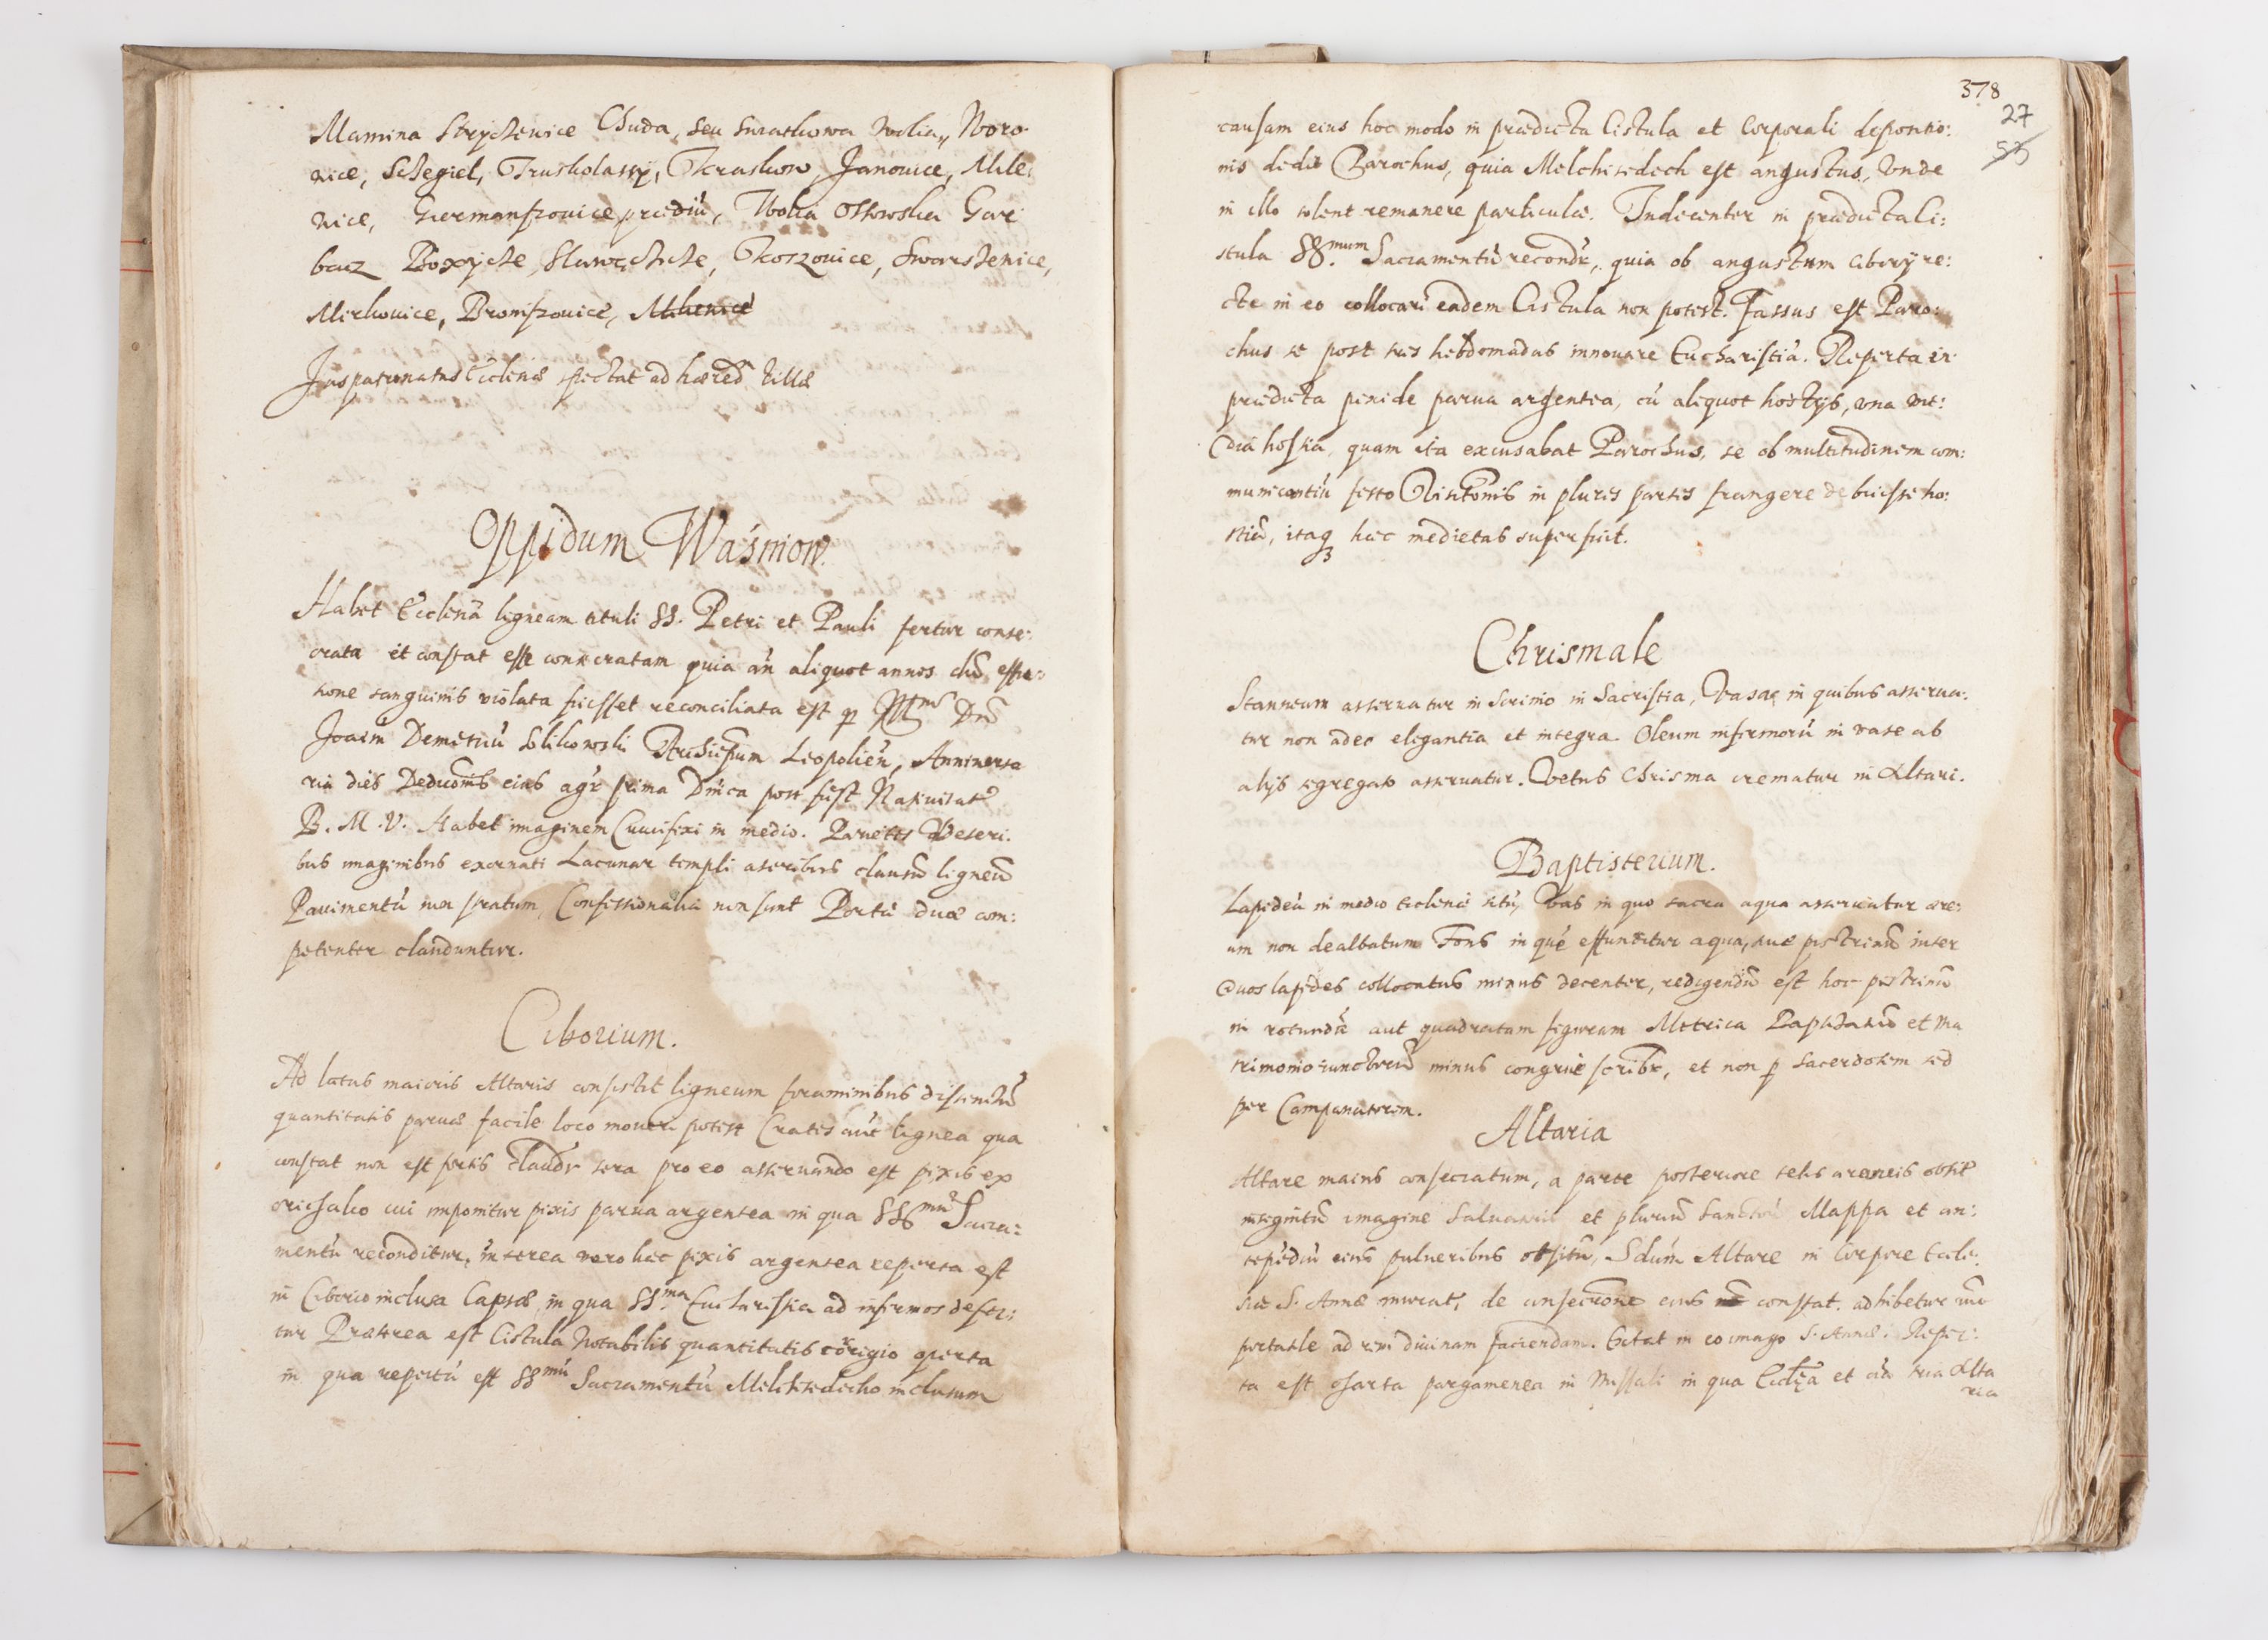 Mamina Strycżenice Chuda, seu Smarkowa Wolia,, Woro
nice, Sczegiel, Truskolassy, Kraskow, Janowice, Mile:
nice, Germanszouice prædiũ, Wolia Ossowska Gar
bacz Boxycże, Sławęcżicże, Koszouice, Swarszenice,
Mirkouice, Broniszouice,
Juspatronatus Ecclesiæ spectat ad hæred. Villæ
Oppidum Waśniow.
Habet Ecclesiã ligneam tituli SS. Petri et Pauli fertur conse:
crata et constat esse consecratam quia an aliquot annos cũ effu:
sione sanguinis violata fuisset reconciliata est p Illmũ Dnũ
Joaem Demetriũ Solikowski Archiepum Leopolien, Anniuersa
ria dies Dedicaonis eius agr prima Dnica post fest Natiuitat
B. M. V. Habet imaginem Crucifixi in medio. Parietes Veteri
bus imaginibus exornati Lacunar templi asseribus clausũ ligneũ
Pauimentũ non stratum, Confessionalia non sunt Portæ duæ com:
petenter clauduntur.
Ciborium.
Ad latus maioris Altaris consistit ligneum foraminibus distinctũ
quantitatis paruæ facile loco moueri potest Crates aut lignea qua
constat non est fortis claudr sera pro eo asseruando est pixis ex
oricħalco cui imponitur pixis parua argentea in qua SSmũ Sacra:
mentũ reconditur, interea vero hæc pixis argentea reperta est
in Ciborio inclusa Capsæ, in qua SS.ma Eucharistia ad infirmos defer:
tur Præterea est Cistula Notabilis quantitatis corrigio operta
in qua repertũ est SSmũ Sacramentũ Melchisedecho inclusum
378
27
causam eius hoc modo in prædicta Cistula et Corporali depositio:
nis dedit Parochus, quia Melchisedech est angustus, vnde
in illo solent remanere particulæ. Indecenter in prædicta Ci:
stula SS.mum Sacramentũ recondr, quia ob angustum ciborij re:
cte in eo collocari eadem Cistula non potest. Fassus est Paro:
chus se post tres hebdomadas innouare Eucharistiã. Reperta in
prædicta pixide parua argentea, cũ aliquot hostijs, vna me:
dia hostia, quam ita excusabat Parochus, se ob multitudinem com:
municantiũ festo Visitaonis in plures partes frangere debuisse ho:
stiã, itaq3 hæc medietas superfuit.
Chrismale
Stanneum asseruatur in Scrinio in Sacristia, Vasa, in quibus asserua:
tur non adeo elegantia et integra. Oleum infirmorũ in vase ab
alijs segregato asseruatur. Vetus Chrisma crematur in Altari.
Baptisterium.
Lapideũ in medio ecclesiæ sitũ, Vas in quo sacra aqua asseruatur ære:
um non dealbatum Fons in quẽ effunditur aqua, siue pistrinũ inter
duos lapides collocatus minus decenter, redigendũ est hoc pistrinũ
in rotundã aut quadratam figuram Metrica Baptisatorũ et Ma
trimonio iunctorũ minus congrue scribr, et non p sacerdotem sed
per Campanatorem.
Altaria
Altare maius consecratum, a parte posteriore telis araneis obsit
insignitũ imagine Saluatoris et plurium Sanctorũ Mappa et an:
tepediũ eius pulueribus obsitũ, Sdum Altare in Corpore Eccle:
siæ S. Annæ nuncat, de consecraone eius constat. adhibetur
portatile ad rem diuinam faciendam. Extat in eo imago S. Annæ. Reper:
ta est charta pargamenea in Missali in qua Ecclia et tria Alta
ria